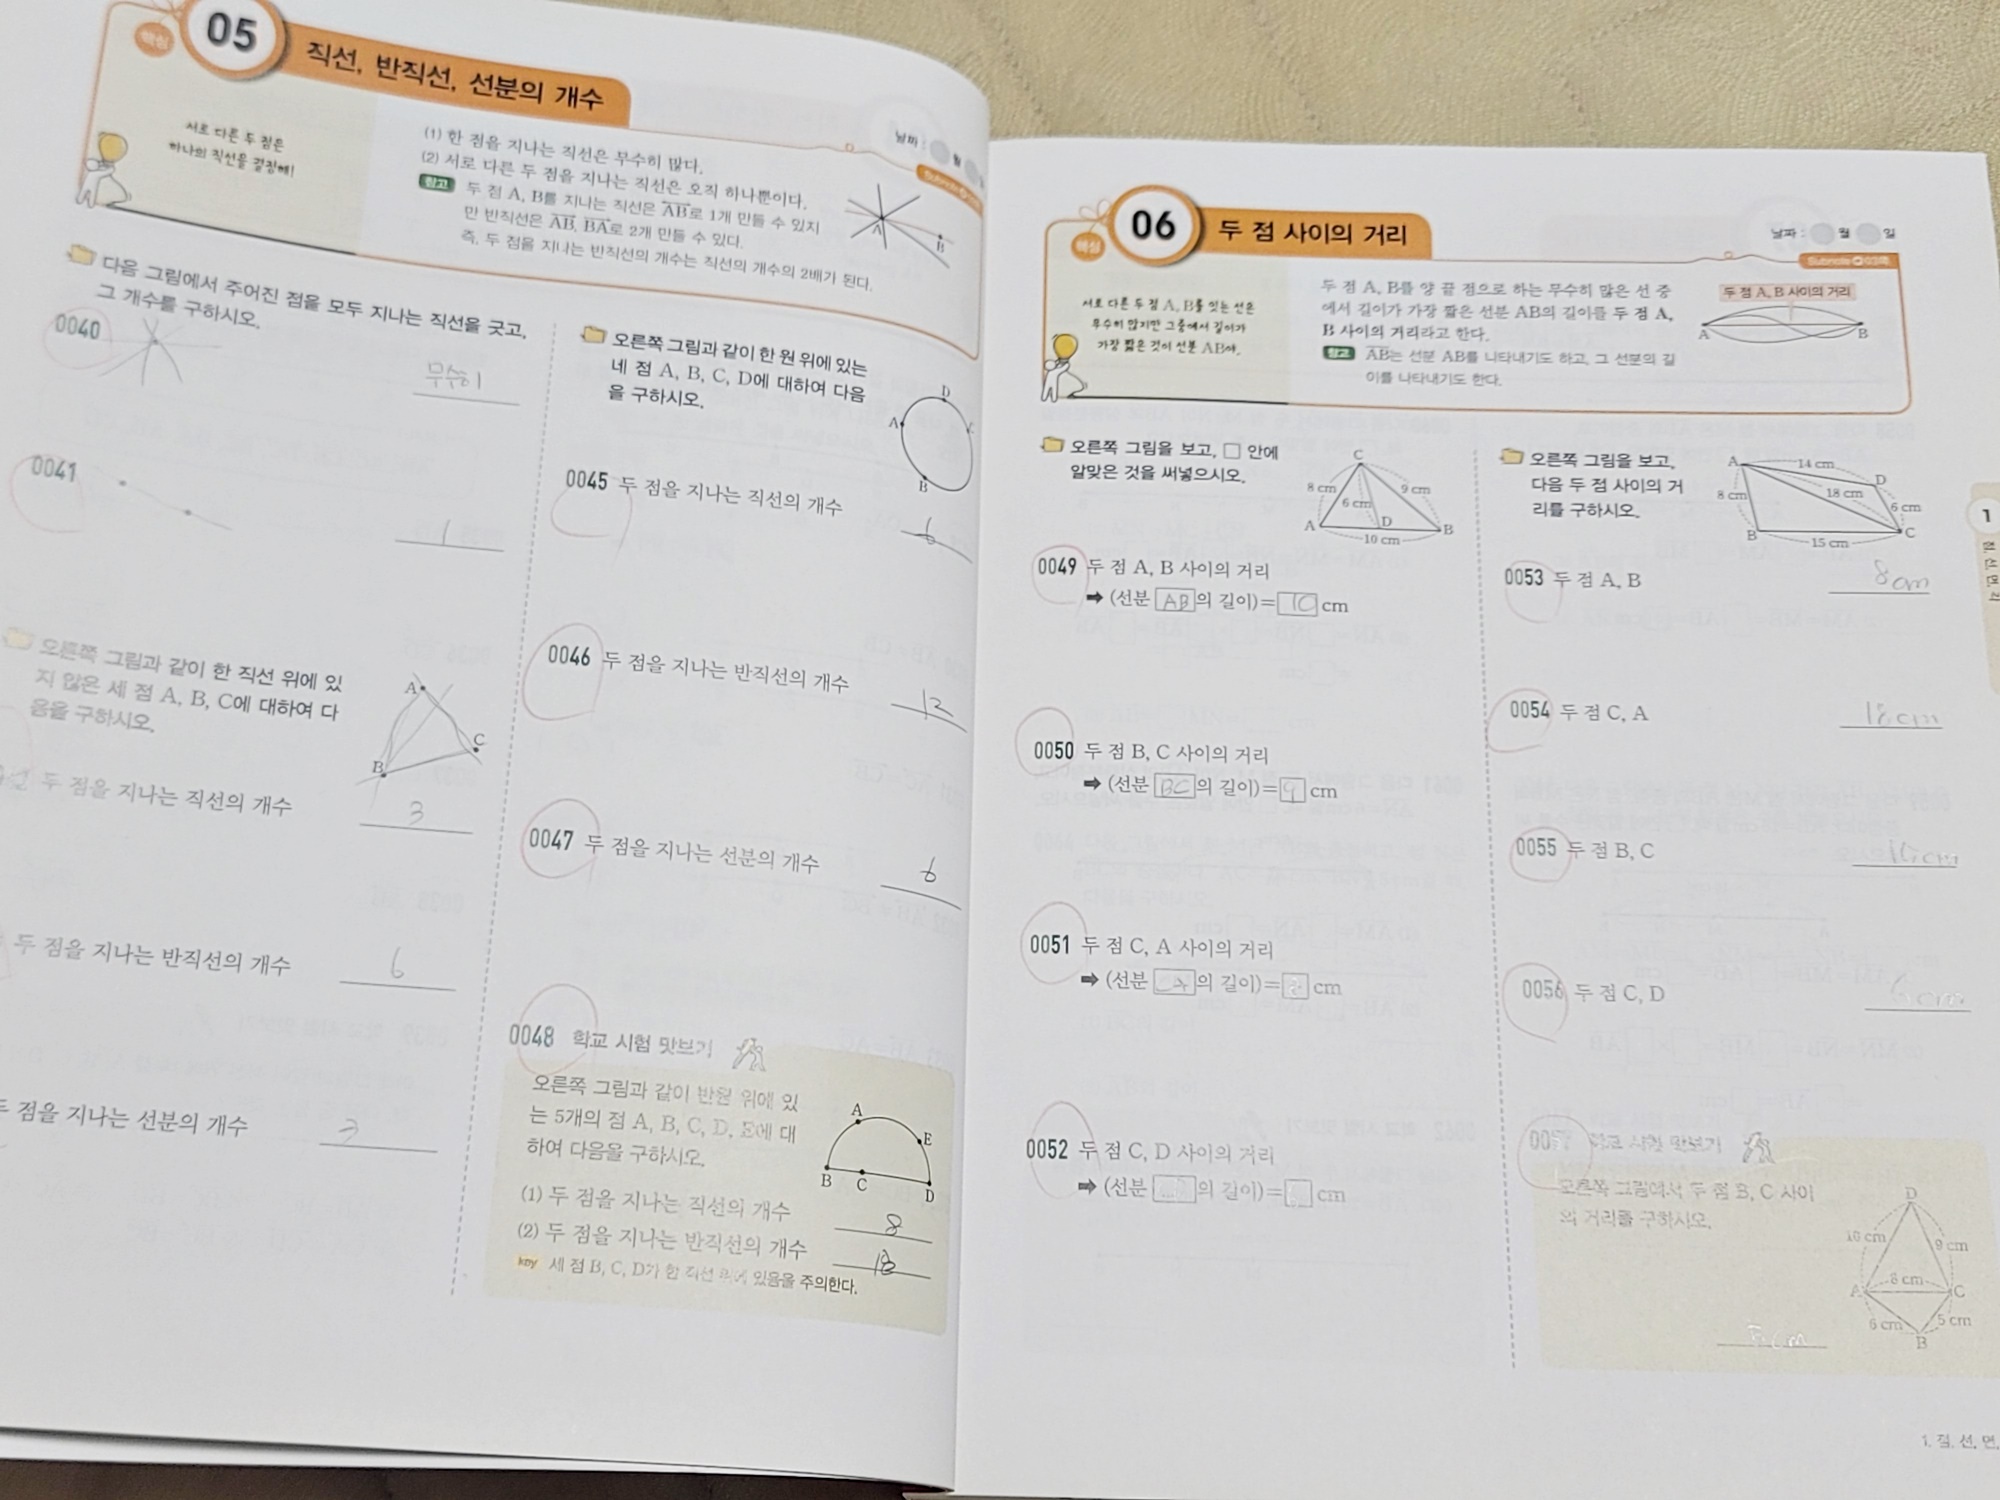 핵심 05 직선, 반직선, 선분의 개수
서로 다른 두 점은
하나의 직선을 결정해!
날짜 : 월
(1) 한 점을 지나는 직선은 무수히 많다.
(2) 서로 다른 두 점을 지나는 직선은 오직 하나뿐이다.
참고 두 점 A, B를 지나는 직선은 AB로 1개 만들 수 있지
만 반직선은 AB, BA로 2개 만들 수 있다.
즉, 두 점을 지나는 반직선의 개수는 직선의 개수의 2배가 된다.
A
B
다음 그림에서 주어진 점을 모두 지나는 직선을 긋고,
그 개수를 구하시오.
0040
무수히
0041
1
오른쪽 그림과 같이 한 직선 위에 있
지 않은 세 점 A, B, C에 대하여 다
음을 구하시오.
A
B
C
두 점을 지나는 직선의 개수
3
두 점을 지나는 반직선의 개수
6
두 점을 지나는 선분의 개수
3
오른쪽 그림과 같이 한 원 위에 있는
네 점 A, B, C, D에 대하여 다음
을 구하시오.
D
A
B
0045 두 점을 지나는 직선의 개수
6
0046 두 점을 지나는 반직선의 개수
12
0047 두 점을 지나는 선분의 개수
6
0048 학교 시험 맛보기
오른쪽 그림과 같이 반원 위에 있
는 5개의 점 A, B, C, D, E에 대
하여 다음을 구하시오.
A
E
B C D
(1) 두 점을 지나는 직선의 개수
8
(2) 두 점을 지나는 반직선의 개수
18
key 세 점 B, C, D가 한 직선 위에 있음을 주의한다.
핵심 06 두 점 사이의 거리
날짜 : 월 일
서로 다른 두 점 A, B를 잇는 선은
무수히 많지만 그중에서 길이가
가장 짧은 것이 선분 AB야.
두 점 A, B를 양 끝 점으로 하는 무수히 많은 선 중
에서 길이가 가장 짧은 선분 AB의 길이를 두 점 A,
B 사이의 거리라고 한다.
참고 AB는 선분 AB를 나타내기도 하고, 그 선분의 길
이를 나타내기도 한다.
두 점 A, B 사이의 거리
A
B
오른쪽 그림을 보고, □ 안에
알맞은 것을 써넣으시오.
C
8 cm
6 cm
9 cm
A
D
B
10 cm
0049 두 점 A, B 사이의 거리
➡ (선분 AB의 길이)=10 cm
0050 두 점 B, C 사이의 거리
➡ (선분 BC의 길이)=9 cm
0051 두 점 C, A 사이의 거리
➡ (선분 CA의 길이)= cm
0052 두 점 C, D 사이의 거리
➡ (선분 의 길이)= cm
오른쪽 그림을 보고,
다음 두 점 사이의 거
리를 구하시오.
A
14 cm
D
8 cm
18 cm
6 cm
B
15 cm
C
0053 두 점 A, B
8cm
0054 두 점 C, A
18cm
0055 두 점 B, C
0056 두 점 C, D
학교 시험 맛보기
오른쪽 그림에서 두 점 B, C 사이
의 거리를 구하시오.
D
10 cm
9 cm
8 cm
A
C
6 cm
5 cm
B
1
1. 점, 선, 면,